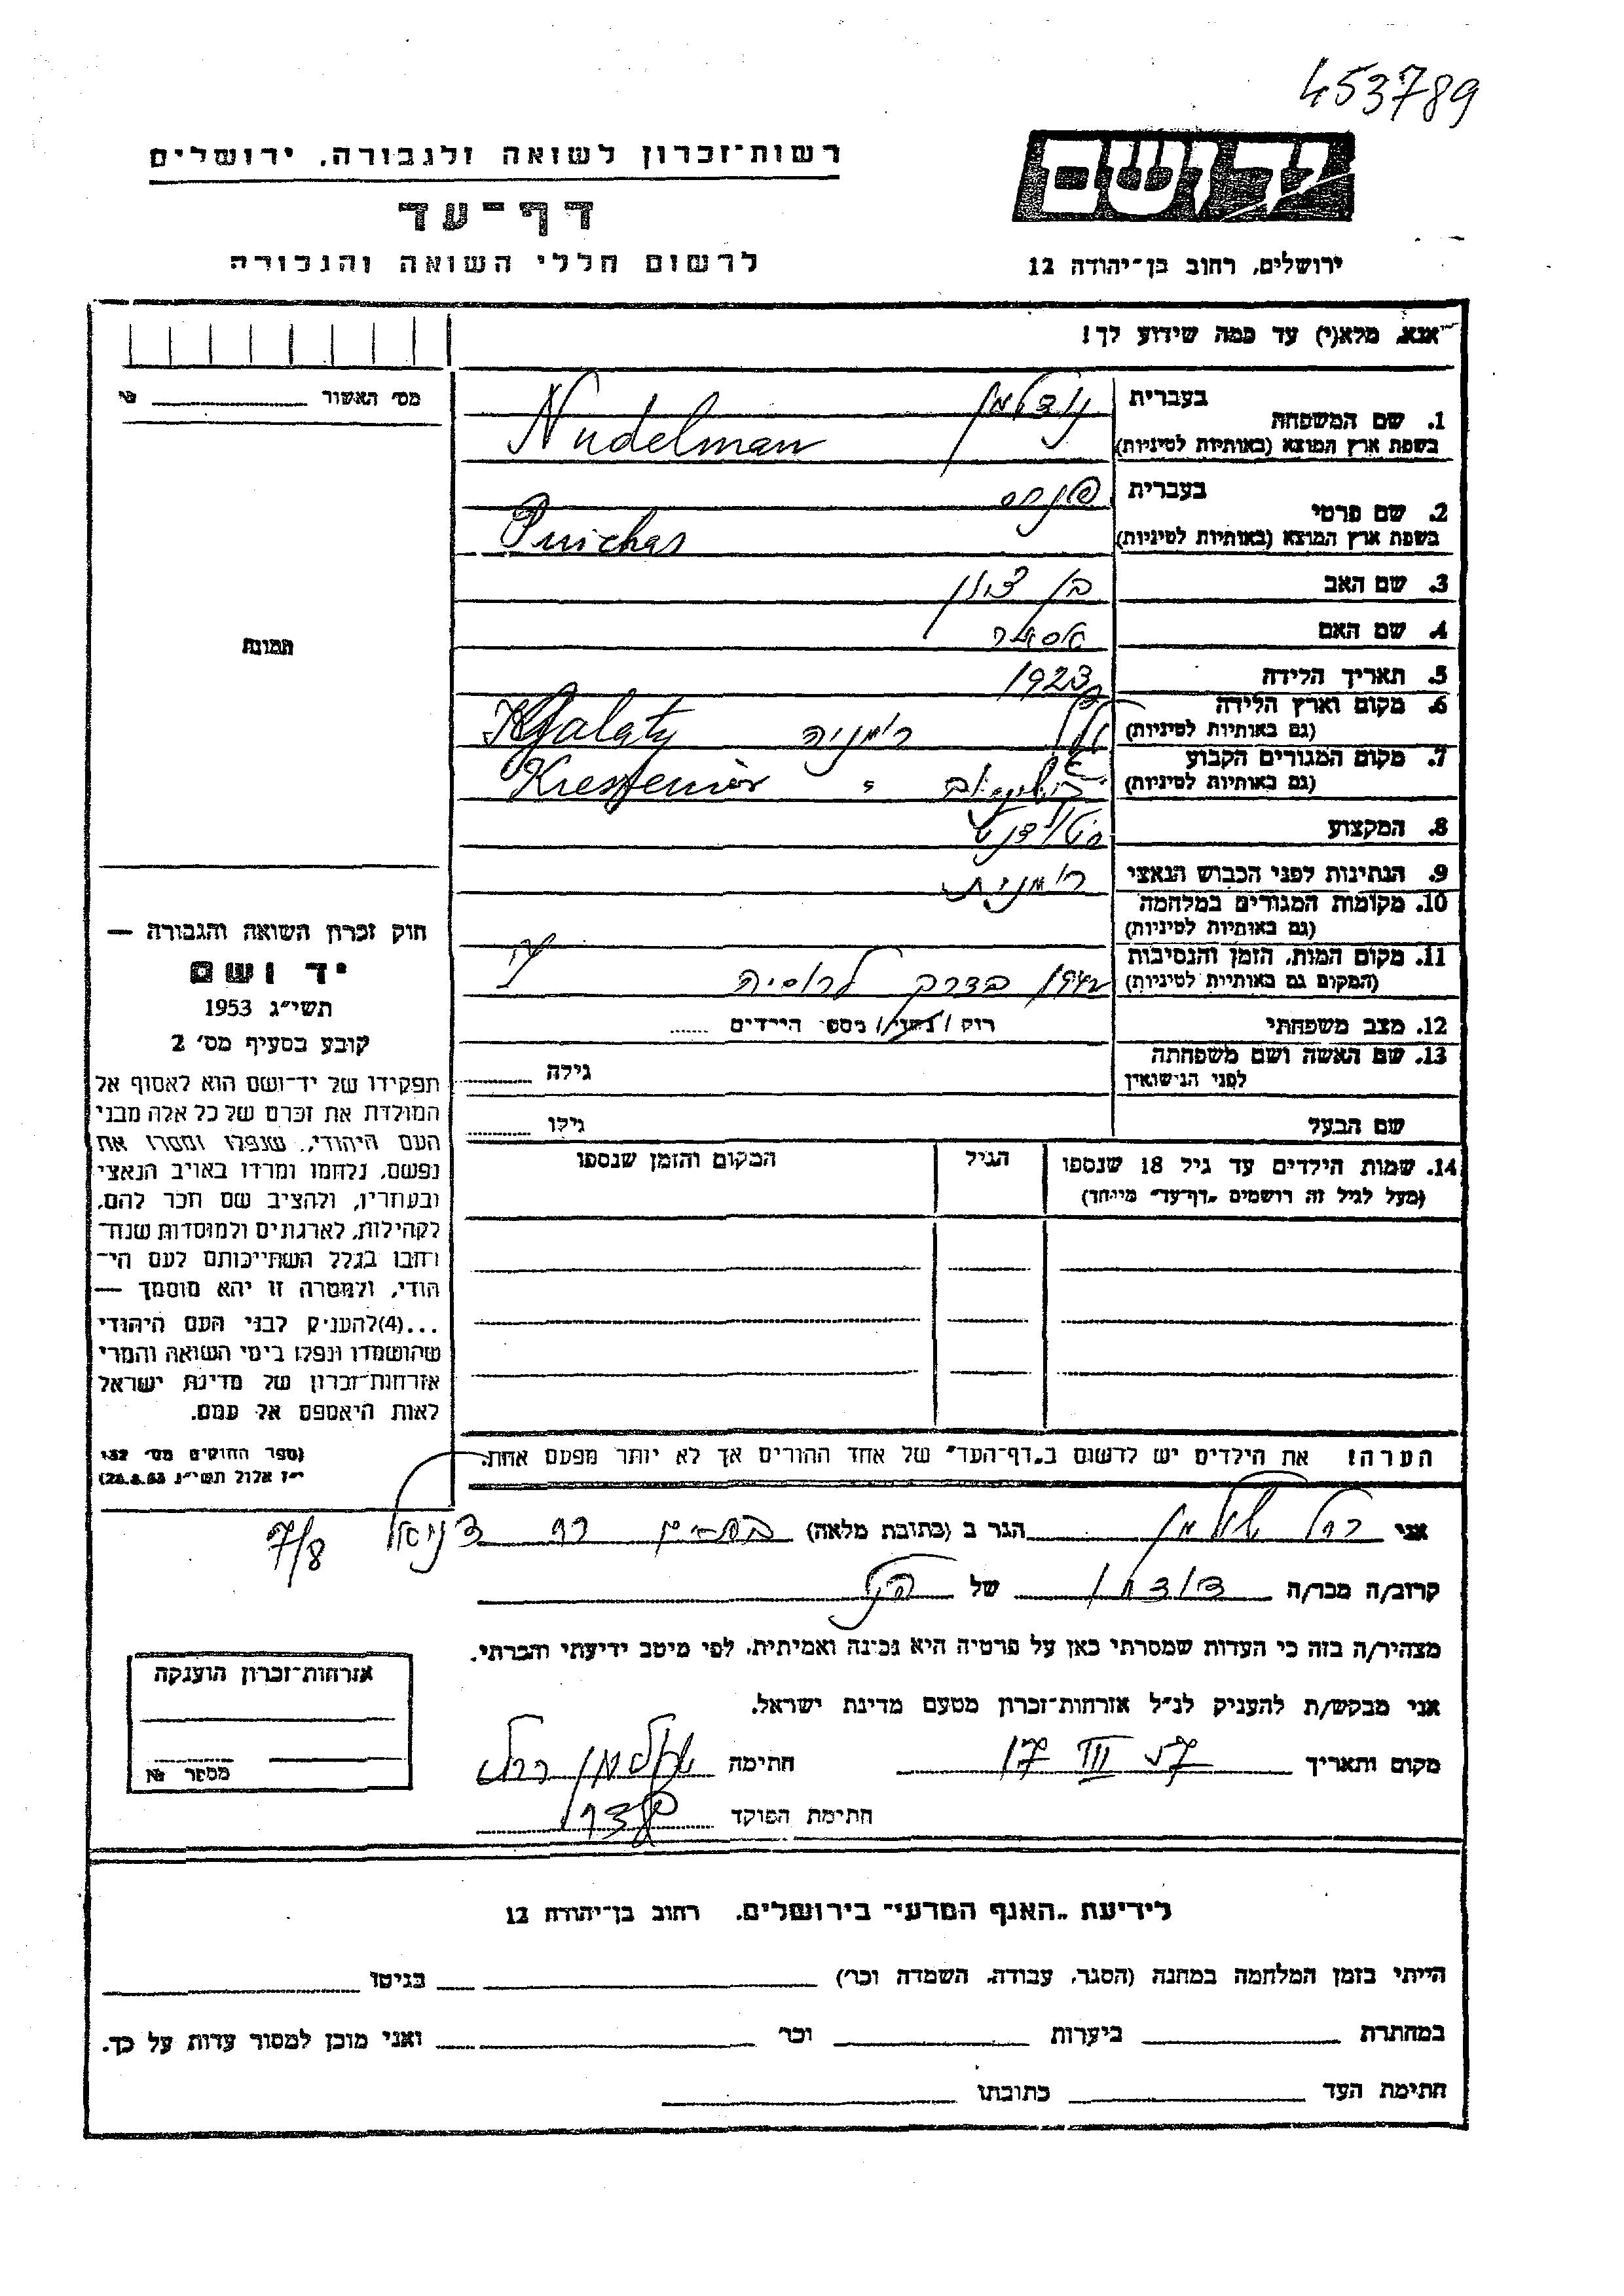 453789
יד ושם
רשות־זכרון לשואה ולגבורה, ירושלים
דף־עד
לרשום חללי השואה והגבורה
ירושלים, רחוב בן־יהודה 12
אנא, מלא(י) עד כמה שידוע לך!
מס׳ האשור №
1. שם המשפחה בעברית נודלמן
בשפת ארץ המוצא (באותיות לטיניות) Nudelman
2. שם פרטי בעברית פנחס
בשפת ארץ המוצא (באותיות לטיניות) Pinchas
3. שם האב בן ציון
4. שם האם אסתר
5. תאריך הלידה 1923
6. מקום וארץ הלידה
(גם באותיות לטיניות) רומניה Galaty
7. מקום המגורים הקבוע
(גם באותיות לטיניות) "
8. המקצוע סטודנט
9. הנתינות לפני הכבוש הנאצי רומנית
10. מקומות המגורים במלחמה
(גם באותיות לטיניות)
11. מקום המות, הזמן והנסיבות
(המקום גם באותיות לטיניות) בדרך לרוסיה
12. מצב משפחתי רווק / נשוי / מספר הילדים
13. שם האשה ושם משפחתה
לפני הנישואין גילה
שם הבעל גילו
14. שמות הילדים עד גיל 18 שנספו הגיל המקום והזמן שנספו
(מעל לגיל זה רושמים „דף־עד” מיוחד)
הערה! את הילדים יש לרשום ב„דף־העד” של אחד ההורים אך לא יותר מפעם אחת.
תמונה
חוק זכרון השואה והגבורה —
יד ושם
תשי״ג 1953
קובע בסעיף מס׳ 2
תפקידו של יד־ושם הוא לאסוף אל
המולדת את זכרם של כל אלה מבני
העם היהודי, שנפלו ומסרו את
נפשם, נלחמו ומרדו באויב הנאצי
ובעוזריו, ולהציב שם וזכר להם,
לקהילות, לארגונים ולמוסדות שנח־
רבו בגלל השתייכותם לעם הי־
הודי, ולמטרה זו יהא מוסמך —
...(4)להעניק לבני העם היהודי
שהושמדו ונפלו בימי השואה והמרי
אזרחות־זכרון של מדינת ישראל
לאות היאספם אל עמם.
(ספר החוקים מס׳ 132
י״ז אלול תשי״ג 28.8.53)
אני רחל הגר ב (כתובת מלאה) בת ים רח דניאל 7/8
קרוב/ה מכר/ה דודתו של הנ״ל
מצהיר/ה בזה כי העדות שמסרתי כאן על פרטיה היא נכונה ואמיתית, לפי מיטב ידיעתי והכרתי.
אני מבקש/ת להעניק לנ״ל אזרחות־זכרון מטעם מדינת ישראל.
מקום ותאריך 17 III 57 חתימה רחל
חתימת הפוקד
אזרחות־זכרון הוענקה
מספר №
לידיעת „האגף המדעי” בירושלים, רחוב בן־יהודה 12
הייתי בזמן המלחמה במחנה (הסגר, עבודה, השמדה וכו׳) בגיטו
במחתרת ביערות וכו׳ ואני מוכן למסור עדות על כך.
חתימת העד כתובתו